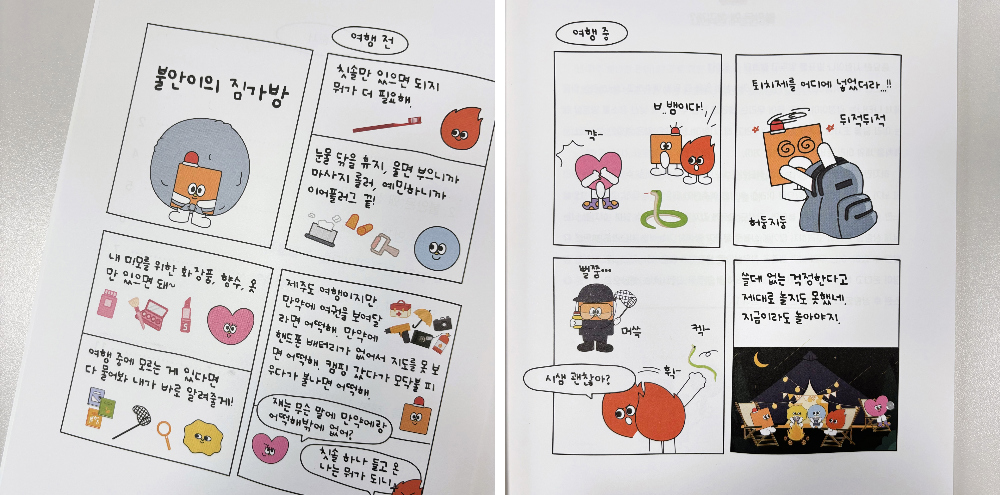 불안이의 짐가방
여행 전
칫솔만 있으면 되지
뭐가 더 필요해.
눈물 닦을 휴지, 울면 부으니까
마사지 롤러, 예민하니까
이어플러그 끝!
내 미모를 위한 화장품, 향수, 옷
만 있으면 돼~
여행 중에 모르는 게 있다면
다 물어봐 내가 바로 알려줄게!
제주도 여행이지만
만약에 여권을 보여달
라면 어떡해. 만약에
핸드폰 배터리가 없어서 지도를 못 보
면 어떡해. 캠핑 갔다가 모닥불 피
우다가 불나면 어떡해.
쟤는 무슨 말에 만약에랑
어떡해밖에 없어?
칫솔 하나 들고 온
나는 뭐가 되니
여행 중
꺅~
ㅂ..뱀이다!
퇴치제를 어디에 넣었더라..!!
뒤적뒤적
허둥지둥
삐쭘...
머쓱
켁~
휙~
시샘 괜찮아?
쓸데 없는 걱정한다고
제대로 놀지도 못했네.
지금이라도 놀아야지!